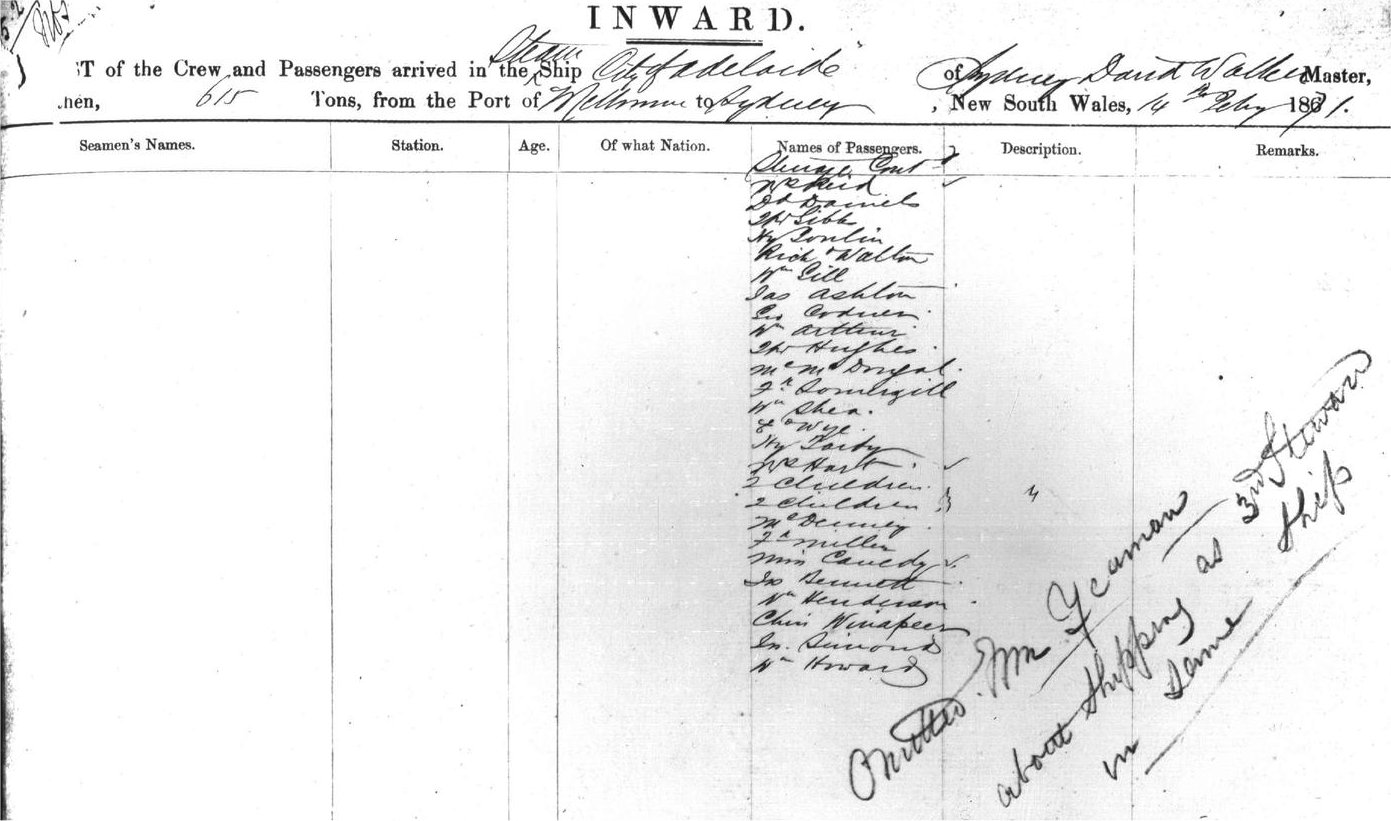 INWARD.
ST of the Crew and Passengers arrived in the Steam Ship City of Adelaide of Sydney David Walker Master,
hen, 615 Tons, from the Port of Melbourne to Sydney, New South Wales, 14th Feby 1871.
Seamen's Names. Station. Age. Of what Nation. Names of Passengers. Description. Remarks.
Steerage Contd
Mrs Reid
Dd Daniels
Thos Gibbs
Hy Tonlin
Richd Walton
Wm Gill
Jas Ashton
Geo Codner
Wm Arthur
Thos Hughes
Mc McDougal
Fr Somergill
Wm Shea
Wye
Hy
Mrs Hart
2 Children
2 Children 4
Mc Denney
Fk Miller
Miss
Jno Bennett
Wm Henderson
Chris
Jn. Simonds
Wm Howard
Omitted. Wm Yeaman
about shipping as 3rd Steward
in same ship